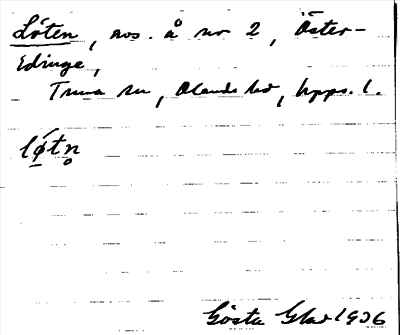 Löten, nos. å nr 2, Öster-
Edinge,
Tuna sn, Olands hd, Upps. l.
lǿtn̥
Gösta Glas 1936